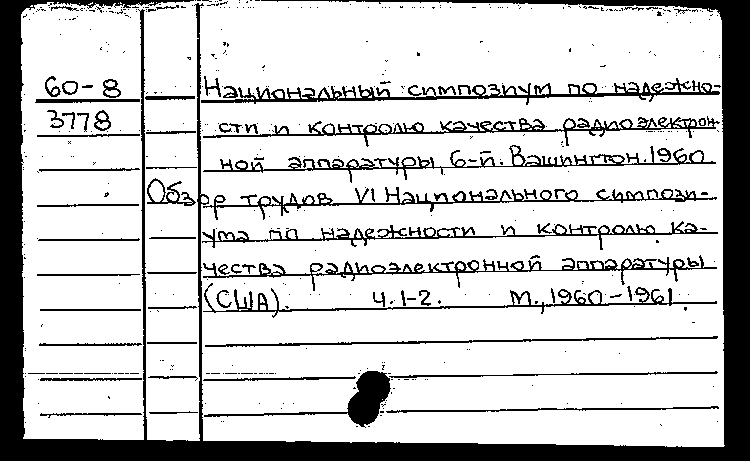 60-8 Национальный симпозиум по надежно-
3778 сти и контролю качества радиоэлектрон-
ной аппаратуры, 6-й. Вашингтон. 1960
Обзор трудов VI Национального симпози-
ума по надежности и контролю ка-
чества радиоэлектронной аппаратуры
(США). Ч. 1-2. М., 1960-1961.